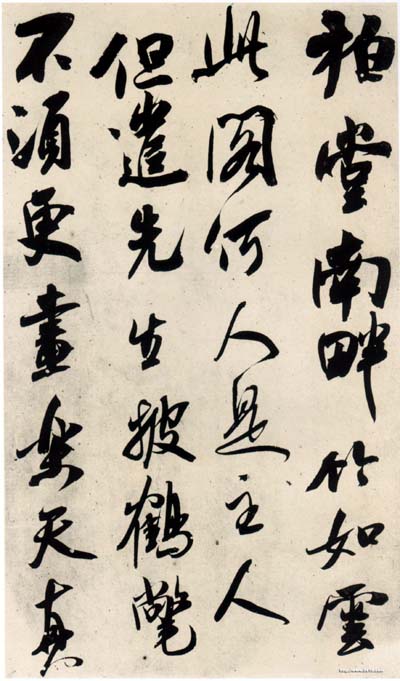 柏堂南畔竹如雲
此閣何人是主人
但遣先生披鶴氅
不須更畫樂天真